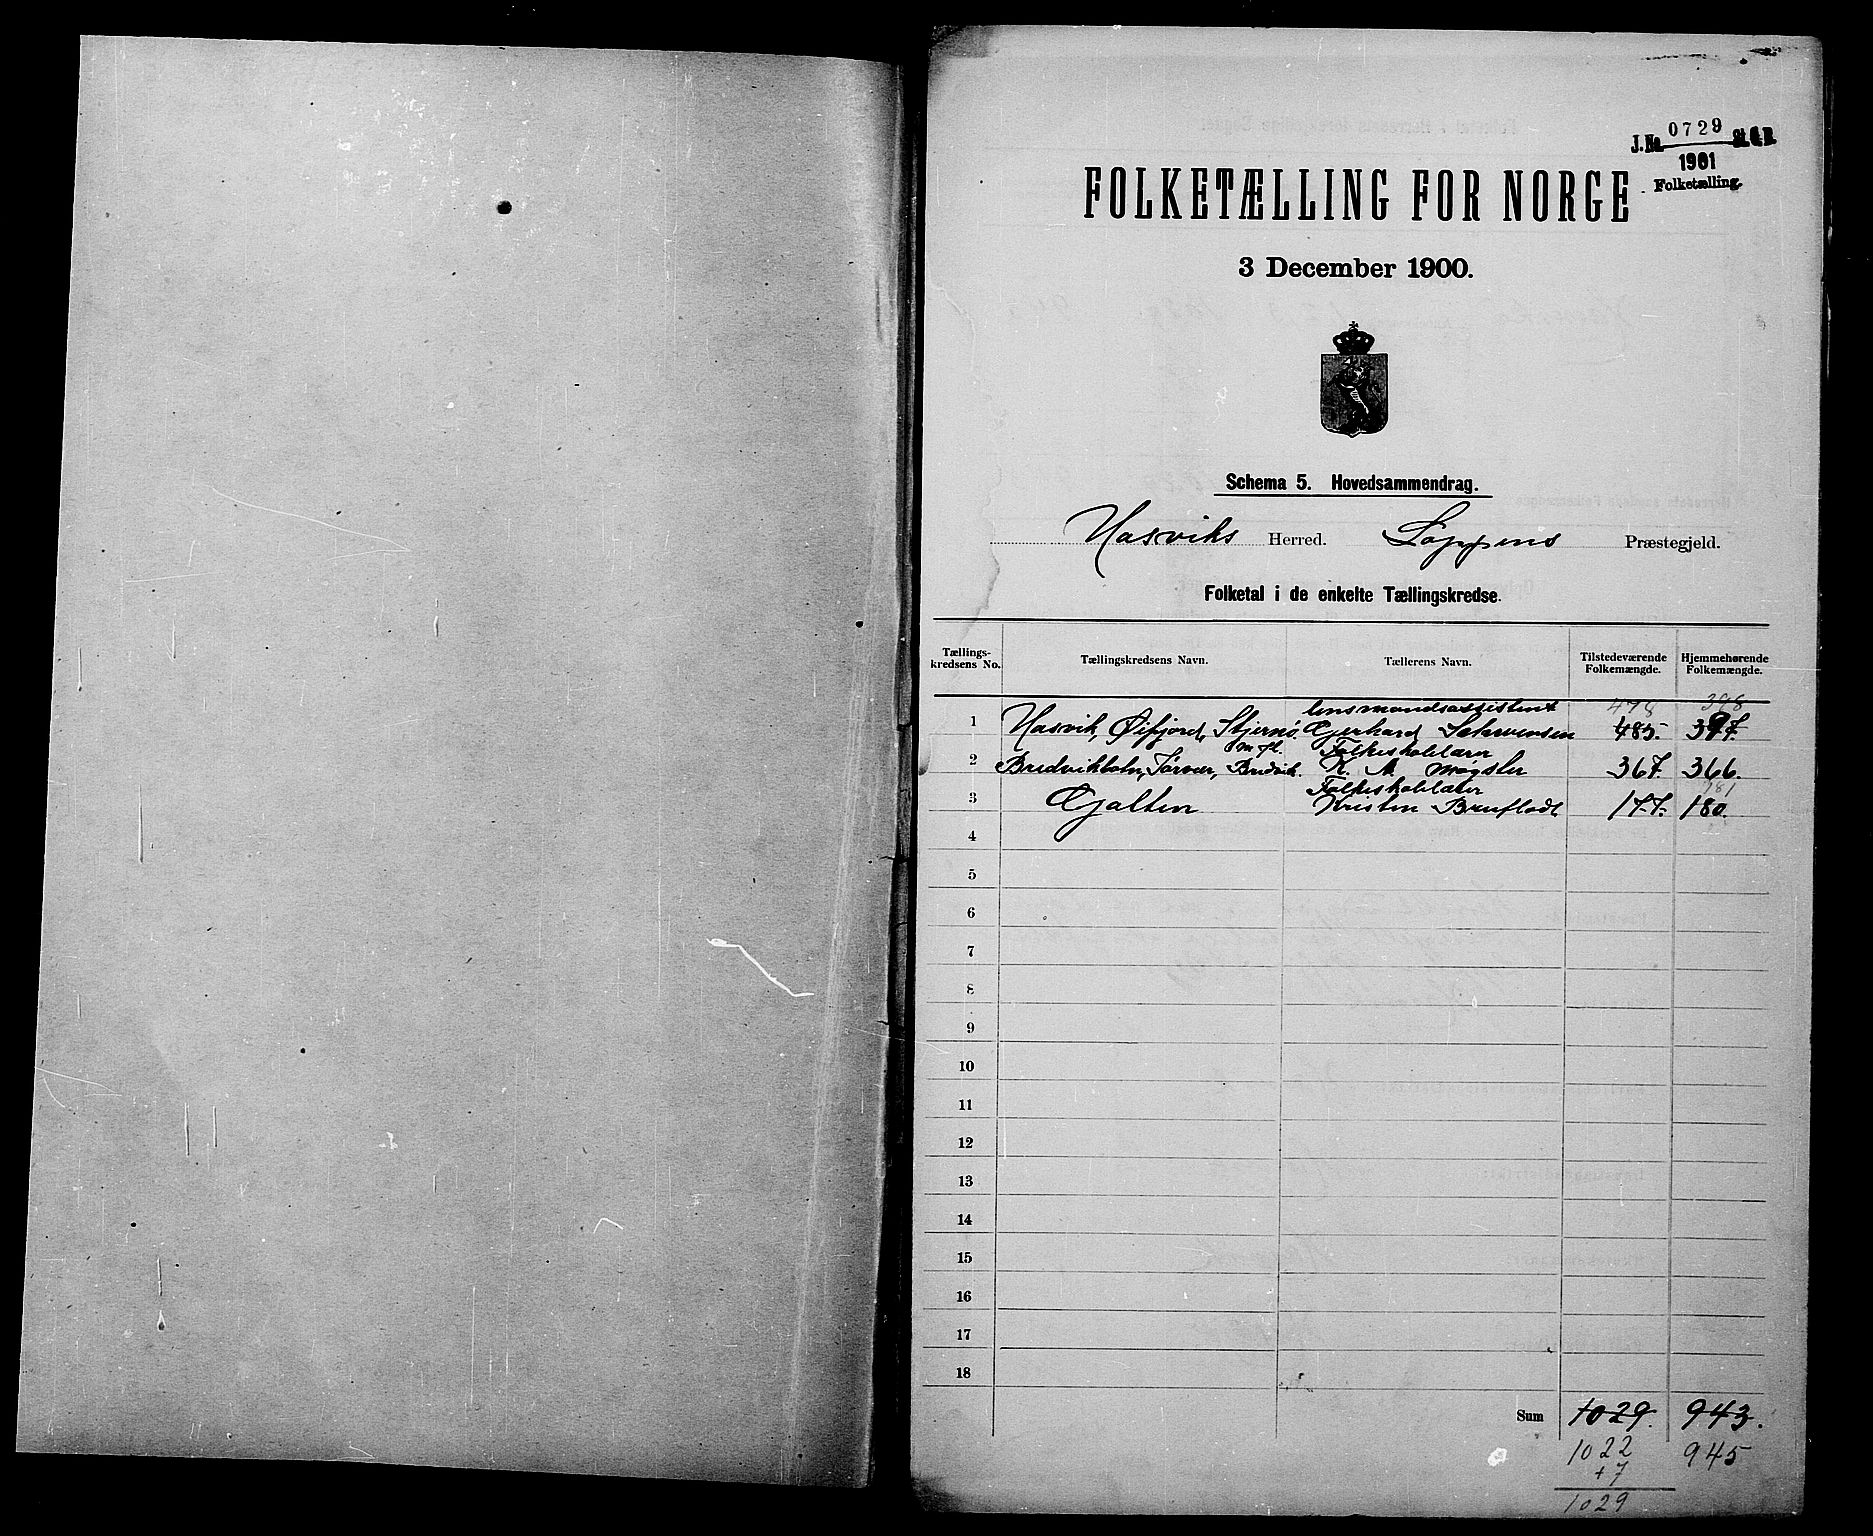 J. No. 0729 St. C. B.
1901
Folketælling.
FOLKETÆLLING FOR NORGE
3 December 1900.
Schema 5. Hovedsammendrag.
Hasviks Herred. Loppens Præstegjeld.
Folketal i de enkelte Tællingskredse.
Tællings-kredsens No. Tællingskredsens Navn. Tællerens Navn. Tilstedeværende Folkemængde. Hjemmehørende Folkemængde.
lensmandsassistent 478 398
1 Hasvik, Øifjord, Stjernø, Gjerhard 485. 397.
m. fl. Folkeskolelærer
2 Bredvikbotn, Sørvær, Bredvik. K. M. Møgster 367. 366.
Folkeskolelærer 181
3 Gjalten Kristen Brufladt 177. 180.
4
5
6
7
8
9
10
11
12
13
14
15
16
17
18
Sum 1029. 943.
1022 945
+7
1029